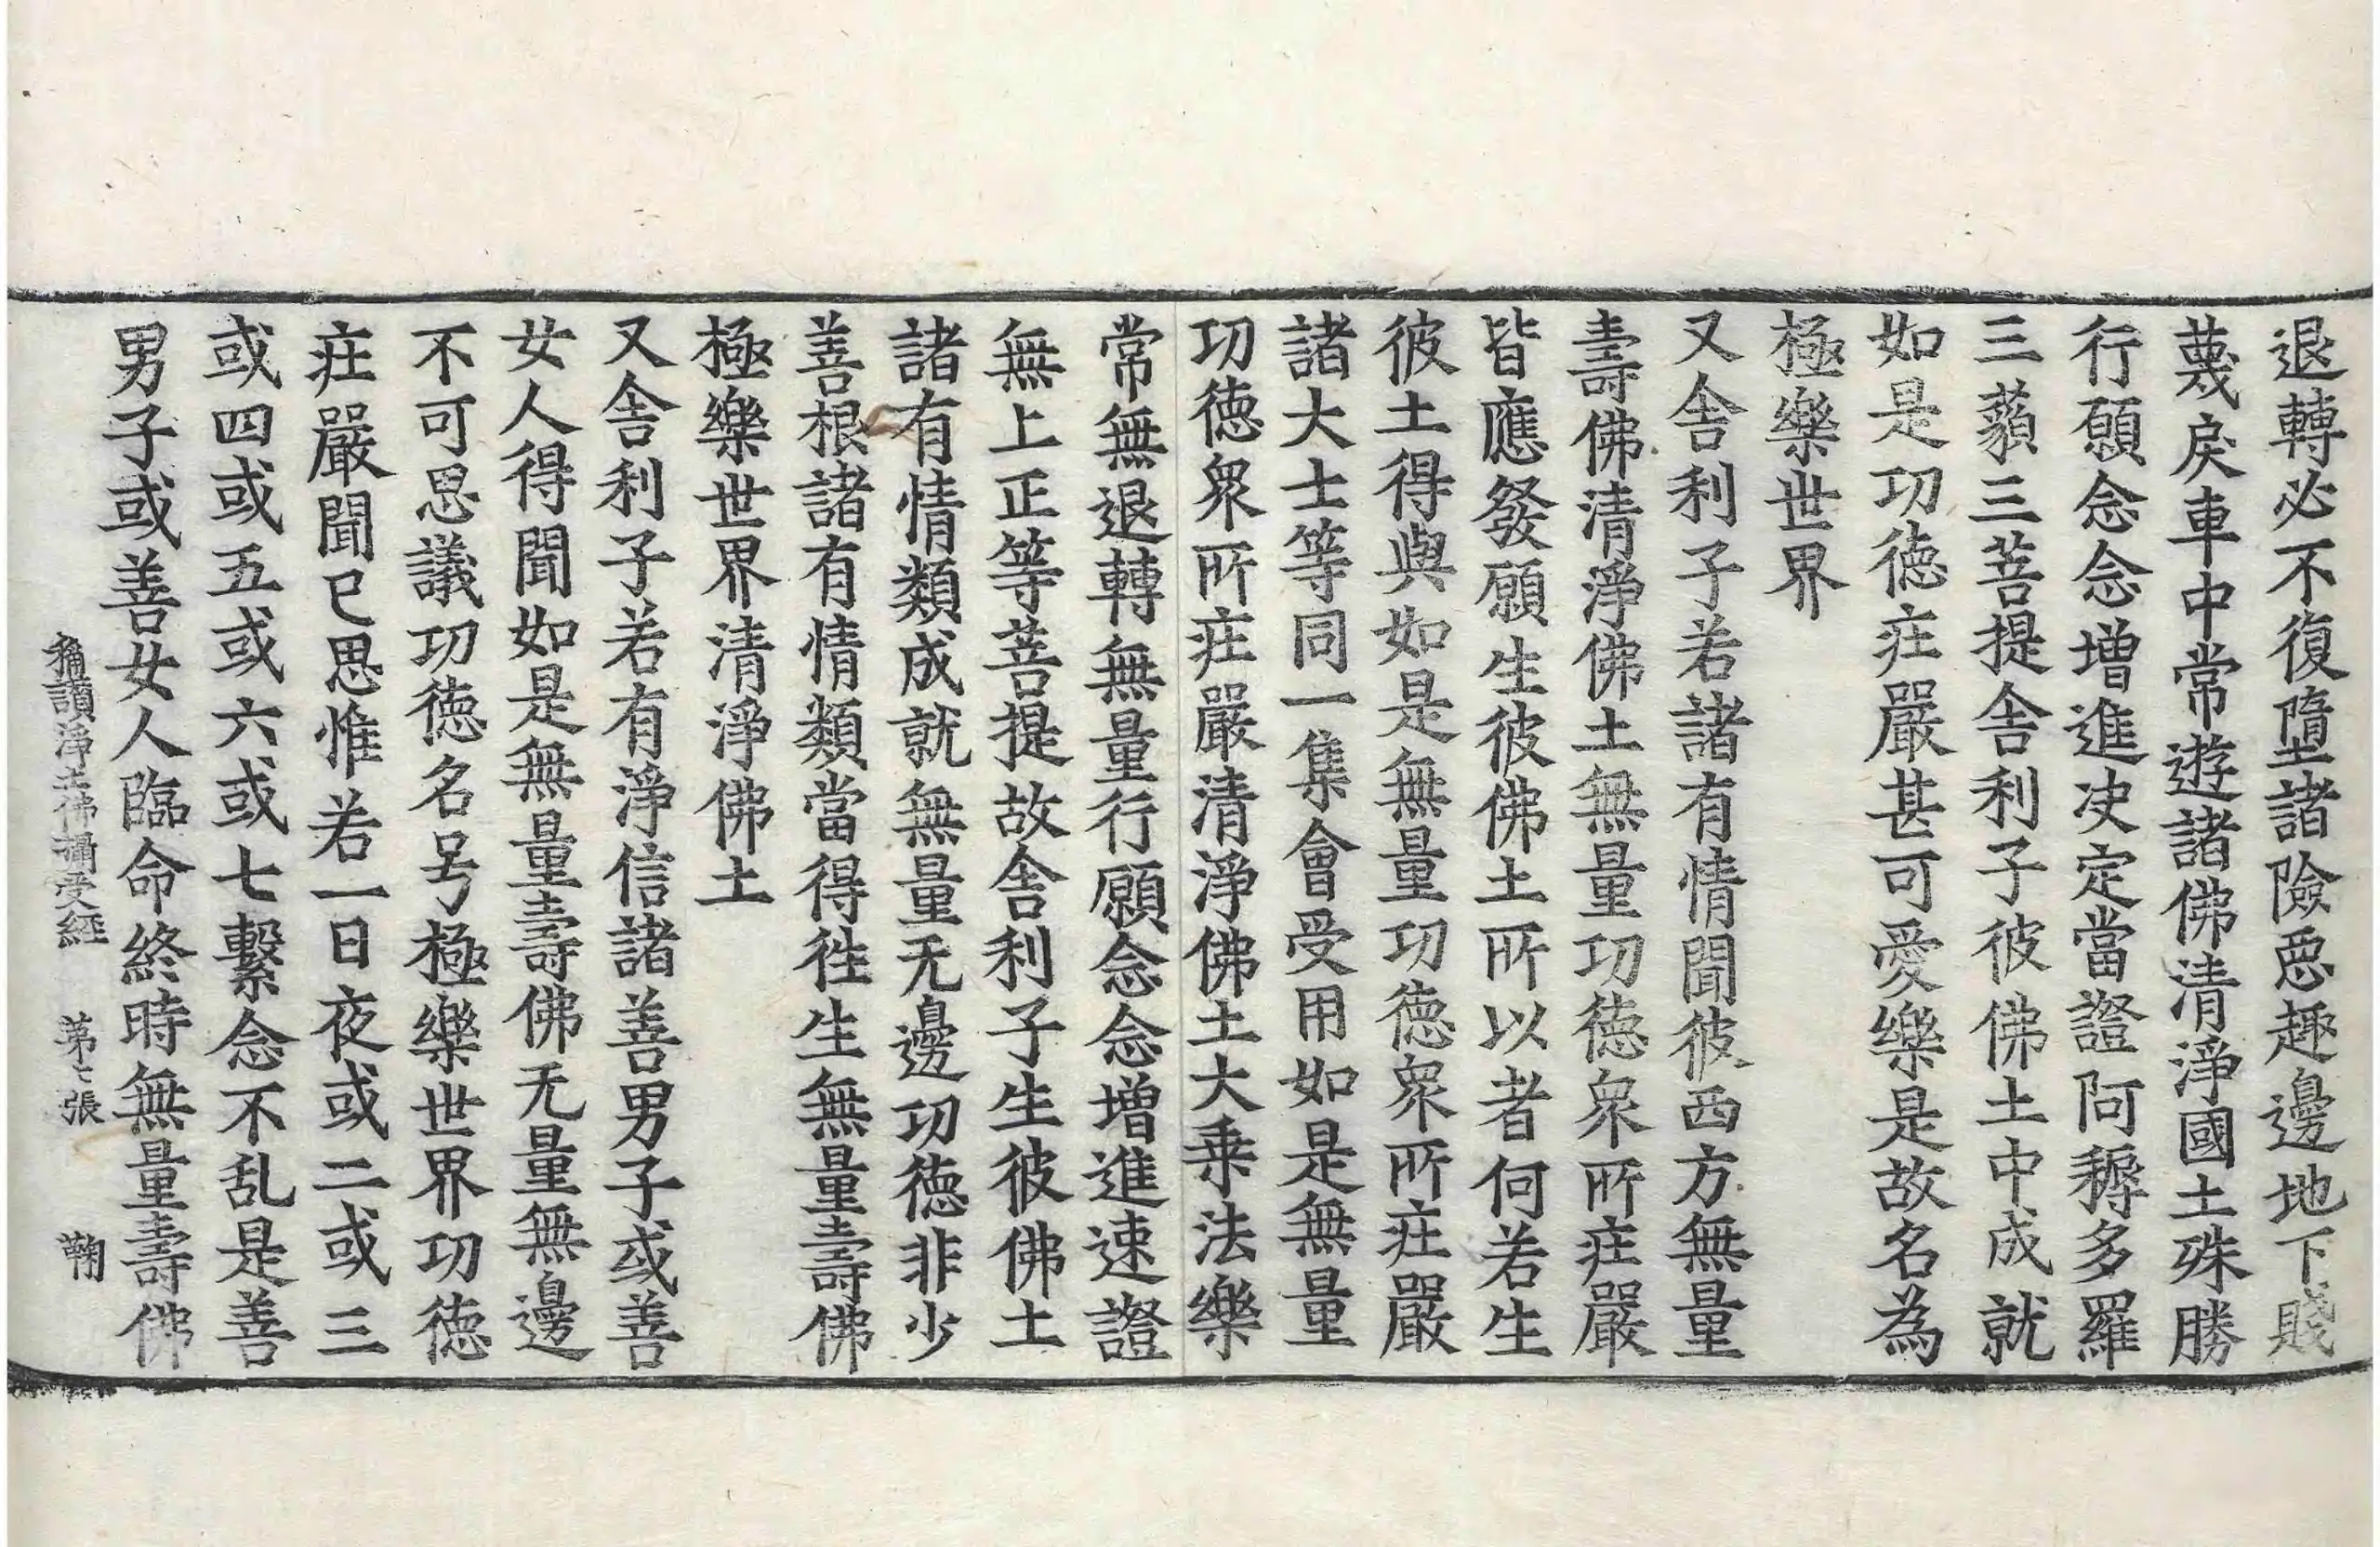 退轉必不復墮諸險惡趣邊地下賤
蔑戾車中常遊諸佛清淨國土殊勝
行願念念增進决定當證阿耨多羅
三藐三菩提舍利子彼佛土中成就
如是功德莊嚴甚可愛樂是故名為
極樂世界
又舍利子若諸有情聞彼西方無量
壽佛清淨佛土無量功德衆所莊嚴
皆應發願生彼佛土所以者何若生
彼土得與如是無量功德衆所莊嚴
諸大士等同一集會受用如是無量
功德衆所莊嚴清淨佛土大乗法樂
常無退轉無量行願念念增進速證
無上正等菩提故舍利子生彼佛土
諸有情類成就無量无邊功德非少
善根諸有情類當得徃生無量壽佛
極樂世界清淨佛土
又舍利子若有淨信諸善男子或善
女人得聞如是無量壽佛无量無邊
不可思議功德名号極樂世界功德
莊嚴聞已思惟若一日夜或二或三
或四或五或六或七繫念不乱是善
男子或善女人臨命終時無量壽佛
稱讚淨土佛攝受經 第七張 鞠